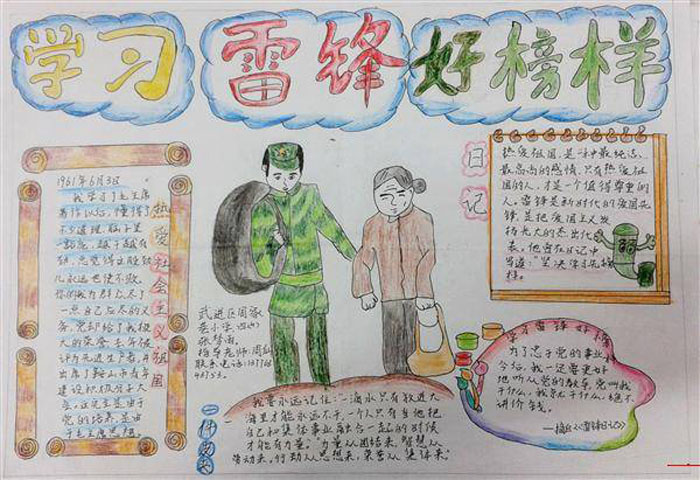 学习雷锋好榜样
1961年6月3日
我学习了毛主席
著作以后，懂得了
不少道理，脑子里
一豁亮，越干越有
劲，总觉得这股劲
儿永远也使不败。
你的我为群众尽了
一点自己应尽的义
务，党却给了我极
大的荣誉，去年被
评为先进生产者，并
出席了鞍山市青年
建设积极分子大
会。这完全是由于
党的培养，是由
于毛主席思想
热爱社会主义祖国
武进区周家
巷小学
张梦雨
指导老师：周
联系电话：
日记
热爱祖国，是一种最纯洁、
最高尚的感情，只有热爱祖
国的人，才是一个值得尊重的
人。雷锋是新时代的爱国先
锋，是把爱国主义发
扬光大的杰出代
表。他曾在日记中
写道："坚决
学习雷锋好榜样
为了忠于党的事业
今后，我一定要更好
地听从党的教导，党叫我
干什么，我就干什么，绝不
讲价钱。
——摘自《雷锋日记》
一件
我要永远记住："一滴水只有放进大
海里才能永远不干，一个人只有当他把
自己和集体事业融合一起的时候
才能有力量。"力量从团结来，智慧从
劳动来，行动从思想来，荣誉从集体来。